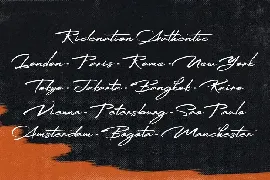 Ridenation Authentic
London - Paris - Roma - New York
Tokyo - Jakarta - Bangkok - Kairo
Vienna - Petersburg - Sao Paulo
Amsterdam - Bogota - Manchester